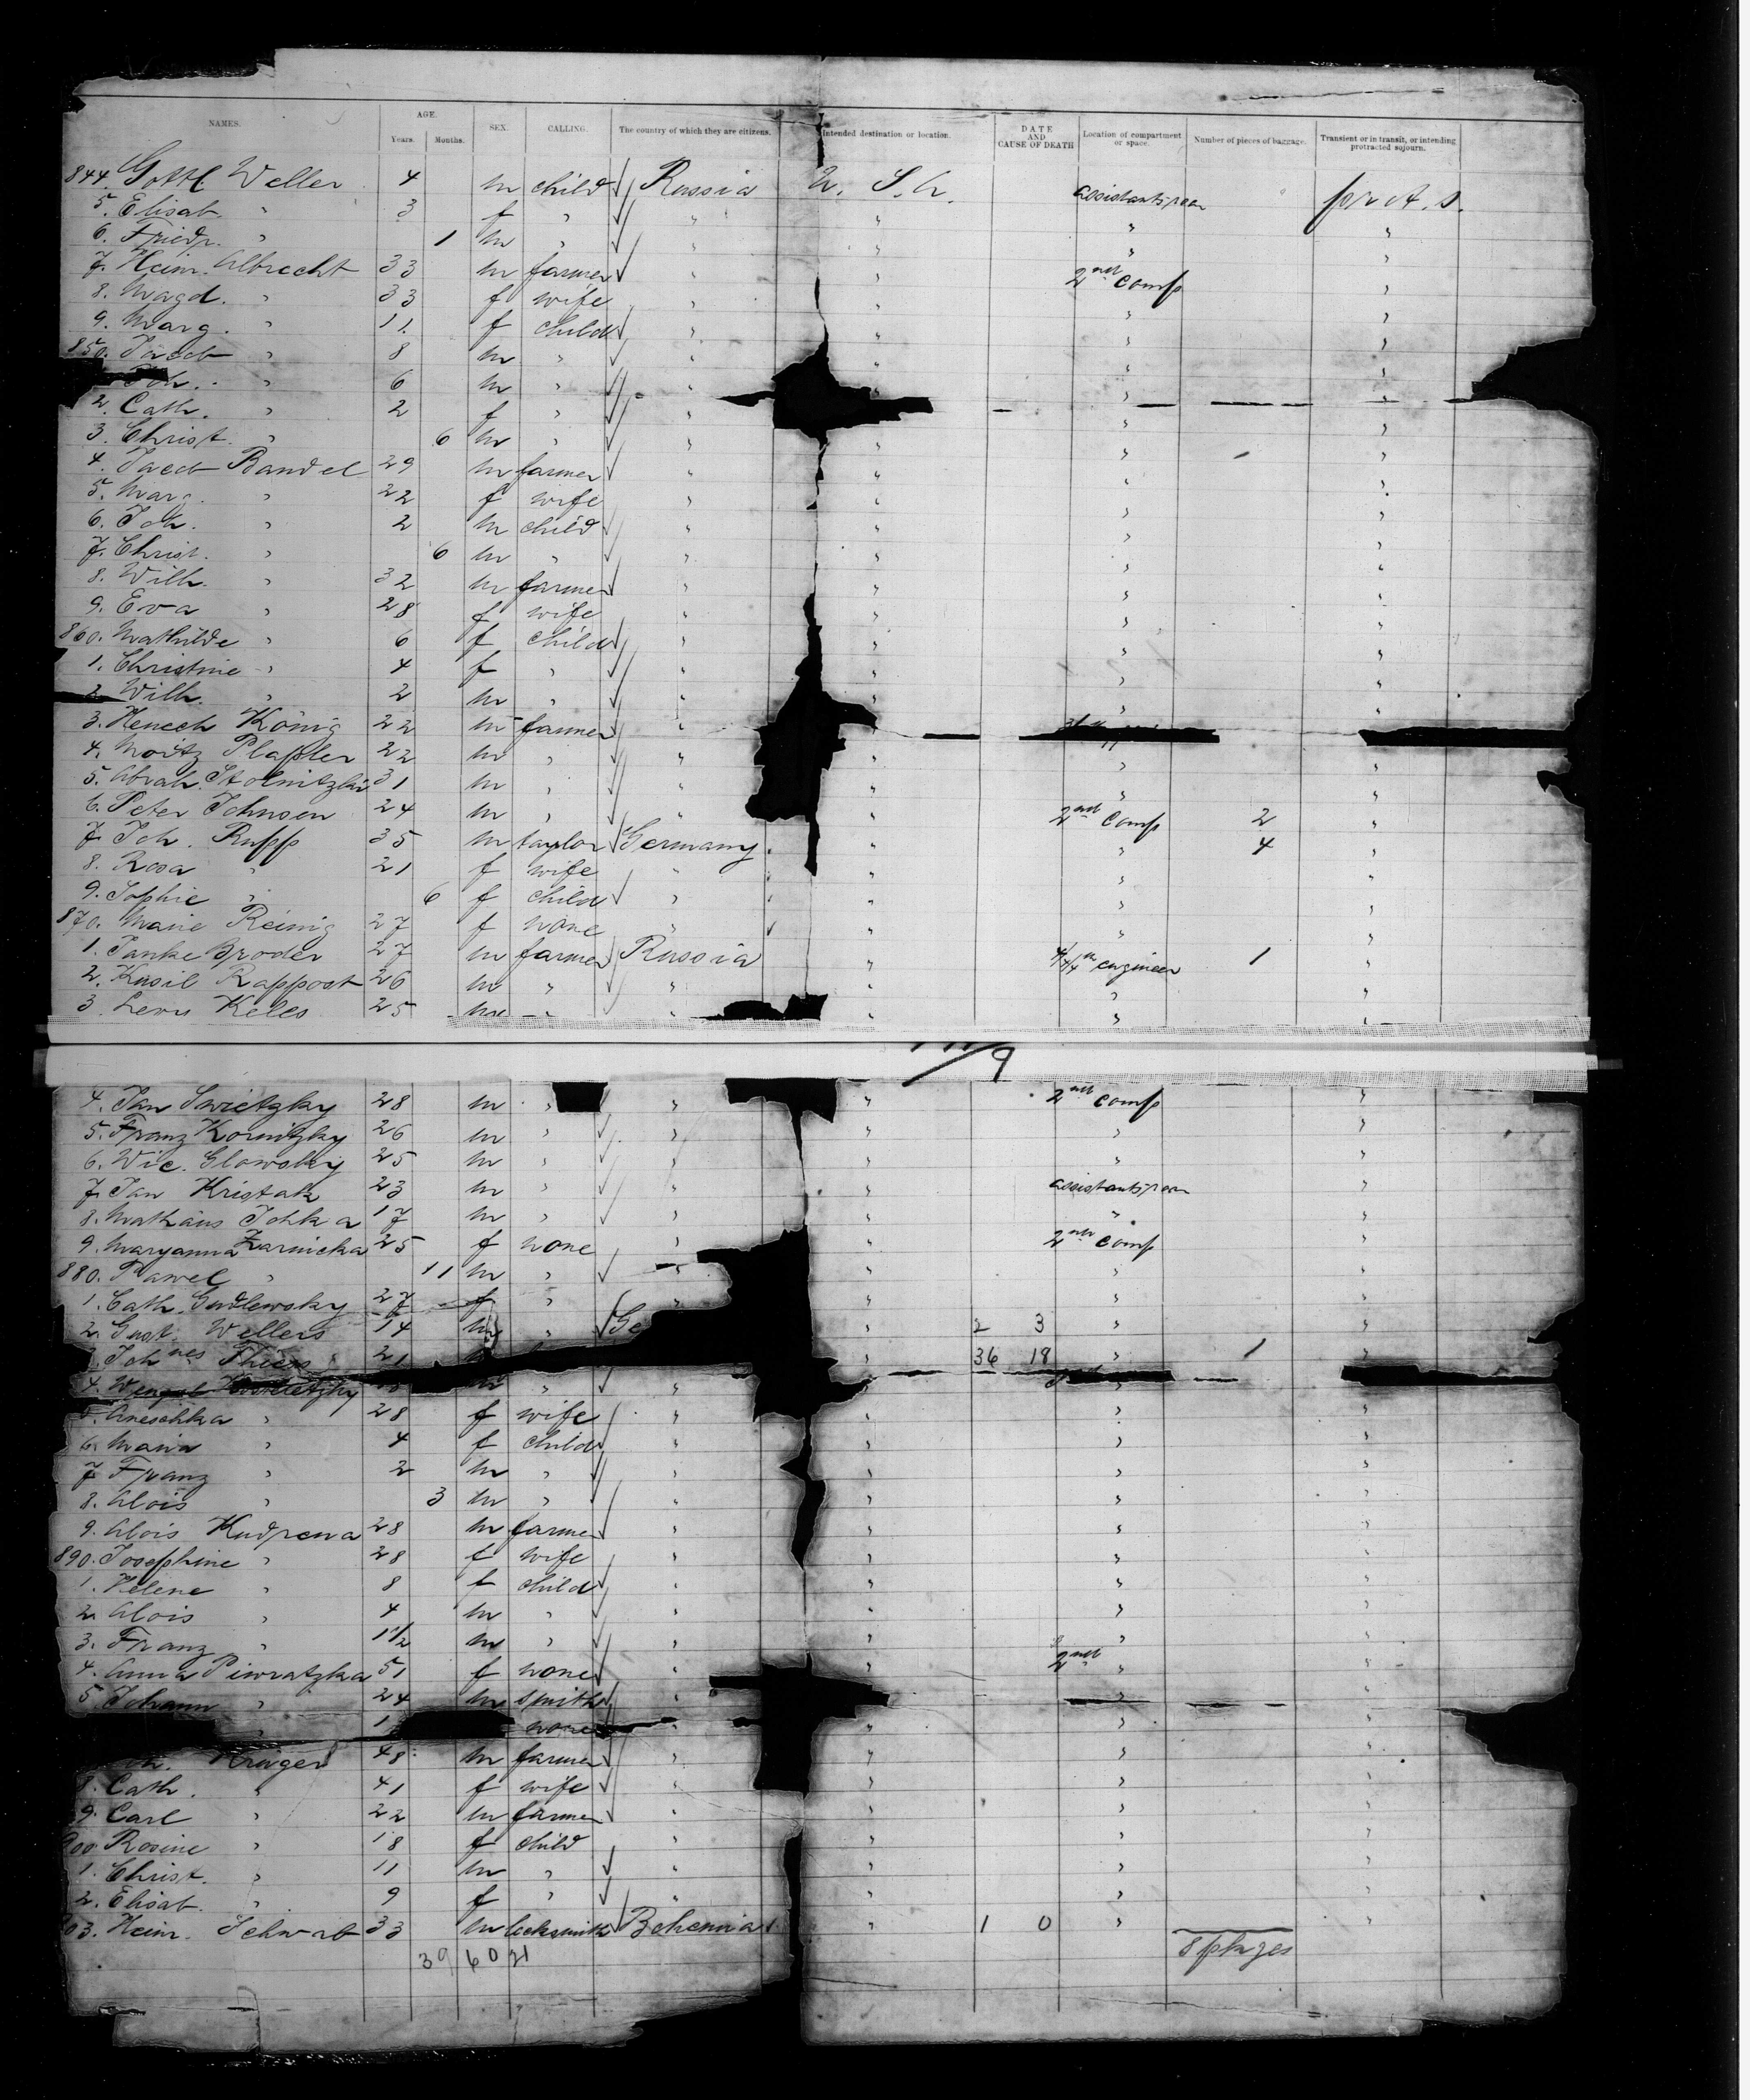 NAMES. AGE. SEX. CALLING. The country of which they are citizens. Intended destination or location. DATE AND CAUSE OF DEATH Location of compartment or space. Number of pieces of baggage. Transient or in transit, or intending protracted sojourn.
Years. Months.
844. Gottl. Weller 4 m child Russia U. S. A. assistantsroom
5. Elisab. " 3 f " " " " "
6. Friedr. " 1 m " " " " "
7. Heinr. Albrecht 33 m farmer " " 2nd comp "
8. Magd. " 33 f wife " " " "
9. Marg. " 11 f child " " " "
850. Jacob " 8 m " " " " "
Joh. " 6 m " " " " "
2. Cath. " 2 f " " " " "
3. Christ. " 6 m " " " " "
4. Jacob Bandel 29 m farmer " " " "
5. Marg. " 22 f wife " " " "
6. Joh. " 2 m child " " " "
7. Christ. " 6 m " " " " "
8. Wilh. " 32 m farmer " " " "
9. Eva " 28 f wife " " " "
860. Mathilde " 6 f child " " " "
1. Christine " 4 f " " " " "
2. Wilh. " 2 m " " " " "
3. Henech König 22 m farmer " "
4. Moritz 22 m " " " " "
5. Abrah. Stolnitzki 31 m " " " " "
6. Peter Johnsen 24 m " " " 2nd comp 2 "
7. Joh. Rupp 35 m taylor Germany " " 4 "
8. Rosa " 21 f wife " " " "
9. Sophie " 6 f child " " " "
870. Marie Reinig 27 f none " " " "
1. Janke Broder 27 m farmer Russia " engineer 1 "
2. Kusil Rapport 26 m " " " " "
3. Keles 25 m " " " " "
4. Jan Swietzky 28 m " " " 2nd comp "
5. Franz Kornitzky 26 m " " " " "
6. Vic. Glowsky 25 m " " " " "
7. Jan Kristak 23 m " " " assistantsroom "
8. Mathäus 17 m " " " " "
9. Maryanna Zarnicka 25 f none " " 2nd comp "
880. Pawel " 11 m " " " " "
1. Cath. Gudlewsky 27 f " " " " "
2. Gust. Wellers 14 m " Ge " 2 3 " "
3. Johnes Thiess 21 " 36 18 " 1 "
4. m " " " "
5. Aneschka " 28 f wife " " " "
6. Maria " 4 f child " " " "
7. Franz " 2 m " " " " "
8. Alois " 3 m " " " " "
9. Alois Kudrena 28 m farmer " " " "
890. Josephine " 28 f wife " " " "
1. Helene " 8 f child " " " "
2. Alois " 4 m " " " " "
3. Franz " 1½ m " " " " "
4. Anna Piwratzka 51 f none " " 2nd " "
5. Johann " 24 m smith " " " "
" 1 none " " " "
Krüger 48 m farmer " " " "
8. Cath. " 41 f wife " " " "
9. Carl " 22 m farmer " " " "
900 Rosine " 18 f child " " " "
1. Christ. " 11 m " " " " "
2. Elisab. " 9 f " " " " "
03. Heinr. Schwab 33 m locksmith Bohemia " 1 0 " "
39 60 21 8 pkges